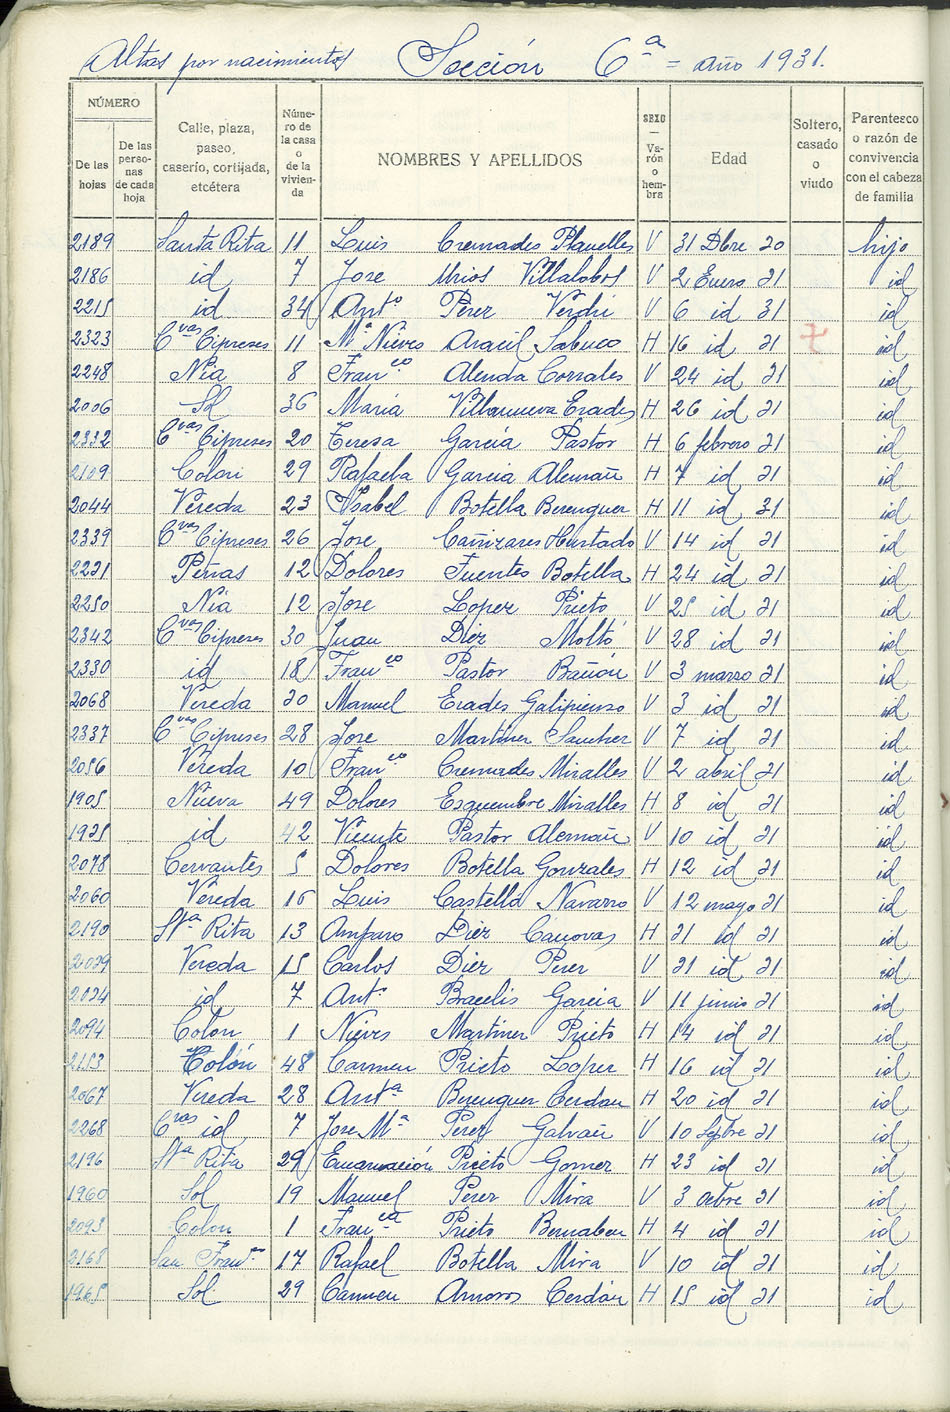 Altas por nacimientos Sección 6ª = año 1931.
NÚMERO
De las hojas
De las personas de cada hoja
Calle, plaza, paseo, caserío, cortijada, etcétera
Número de la casa o de la vivienda
NOMBRES Y APELLIDOS
SEXO — Varón o hembra
Edad
Soltero, casado o viudo
Parentesco o razón de convivencia con el cabeza de familia
2189 Santa Rita 11 Luis Cremades Planelles V 31 Dbre 30 hijo
2186 id 7 Jose Mrios Villalobos V 2 Enero 31 id
2215 id 34 Antº Perez Verdú V 6 id 31 id
2323 Cvas Cipreses 11 Mª Nieves Aracil Sabuco H 16 id 31 id
2248 Nia 8 Franco Alenda Corrales V 24 id 31 id
2006 Sol 36 Maria Villanueva Erades H 26 id 31 id
2332 Cvas Cipreses 20 Teresa García Pastor H 6 febrero 31 id
2109 Colon 29 Rafaela Garcia Alemañ H 7 id 31 id
2044 Vereda 23 Isabel Botella Berenguer H 11 id 31 id
2339 Cvas Cipreses 26 Jose Cañizares Hurtado V 14 id 31 id
2221 Peñas 12 Dolores Fuentes Botella H 24 id 31 id
2250 Nia 12 Jose Lopez Prieto V 25 id 31 id
2342 Cvas Cipreses 30 Juan Diez Moltó V 28 id 31 id
2330 id 18 Franco Pastor Bañón V 3 marzo 31 id
2068 Vereda 30 Manuel Erades Galipienso V 3 id 31 id
2337 Cvas Cipreses 28 Jose Martinez Sanchez V 7 id 31 id
2056 Vereda 10 Franco Cremades Miralles V 2 abril 31 id
1905 Nueva 49 Dolores Esquembre Miralles H 8 id 31 id
1925 id 42 Vicente Pastor Alemañ V 10 id 31 id
2078 Cervantes 5 Dolores Botella Gonzales H 12 id 31 id
2060 Vereda 16 Luis Castella Navarro V 12 mayo 31 id
2190 Sta Rita 13 Amparo Diez Canovas H 21 id 31 id
2029 Vereda 15 Carlos Diez Perez V 21 id 31 id
2024 id 7 Antº Bracelis Garcia V 11 junio 31 id
2094 Colon 1 Nieves Martinez Prieto H 14 id 31 id
2153 Colón 48 Carmen Prieto Lopez H 16 id 31 id
2067 Vereda 28 Antª Berenguer Cerdan H 20 id 31 id
2268 Cvas id 7 Jose Mª Perez Galvañ V 10 Sptbre 31 id
2196 Sta Rita 29 Encarnación Prieto Gomez H 23 id 31 id
1960 Sol 19 Manuel Perez Mira V 3 octbre 31 id
2093 Colon 1 Franca Prieto Bernabeu H 4 id 31 id
2168 San Franco 17 Rafael Botella Mira V 10 id 31 id
1965 Sol 29 Carmen Amoros Cerdán H 15 id 31 id